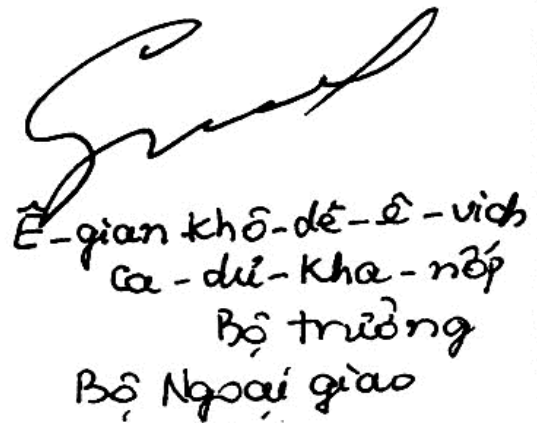 Ê-gian khô-dê-ê-vich
Ca-dư-kha-nốp
Bộ trưởng
Bộ Ngoại giao